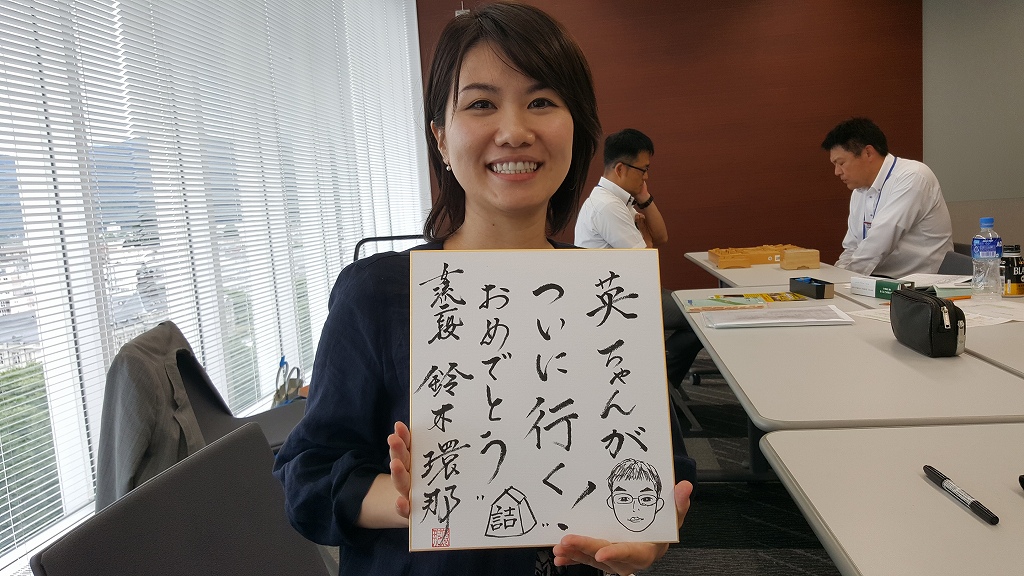 英ちゃんが
ついに行く!
おめでとう
女流二段 鈴木環那
詰